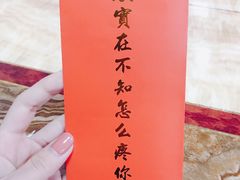 實在不知怎么疼你